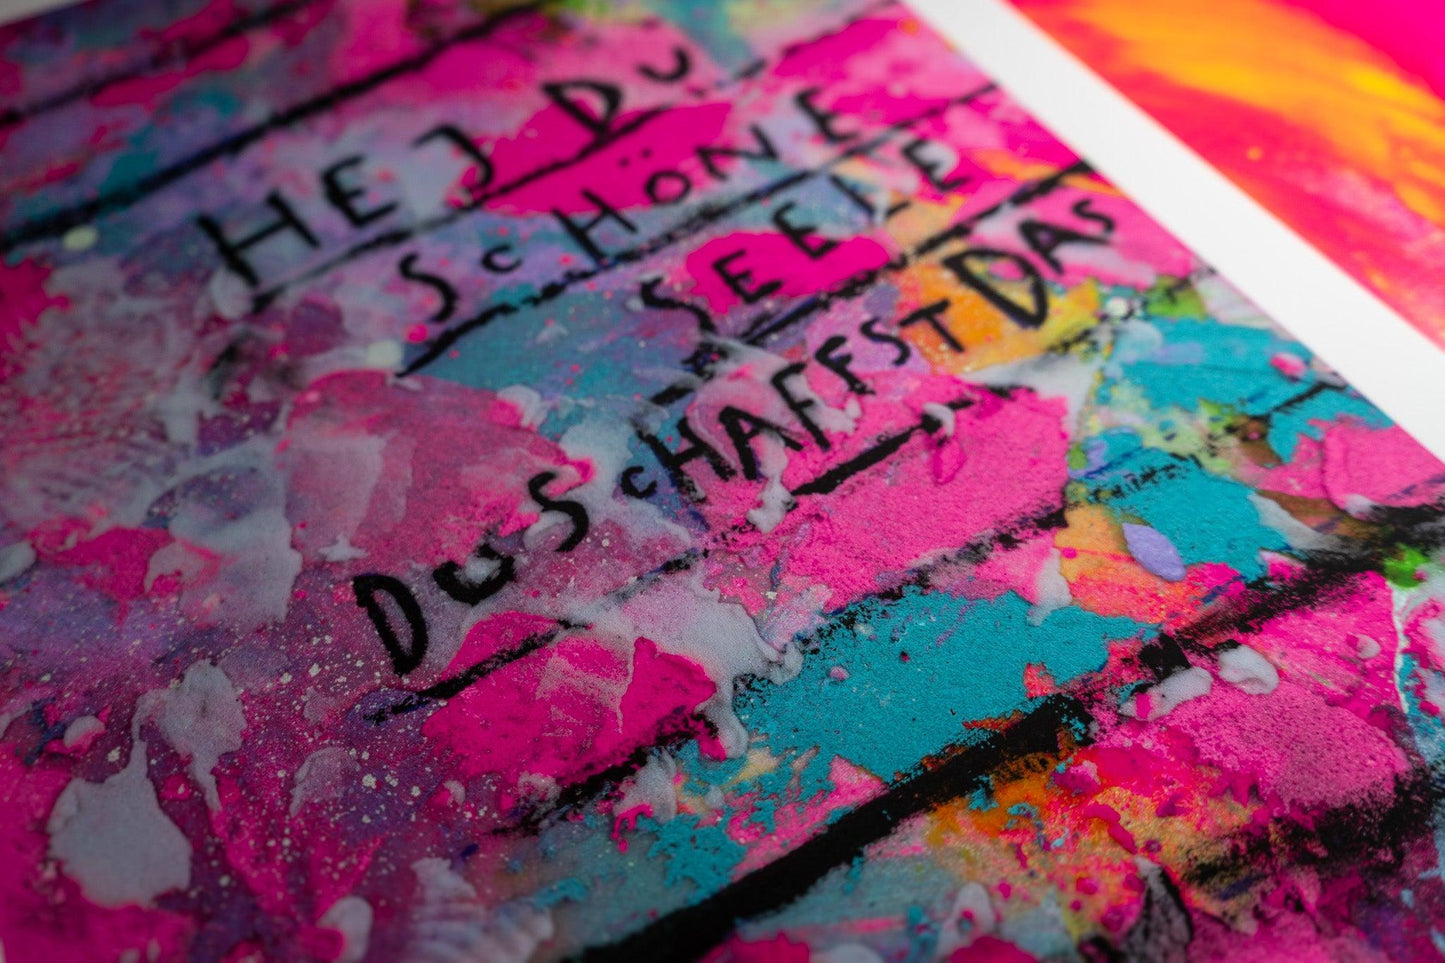 HEJ DU
SCHÖNE
SEELE
DU SCHAFFST DAS